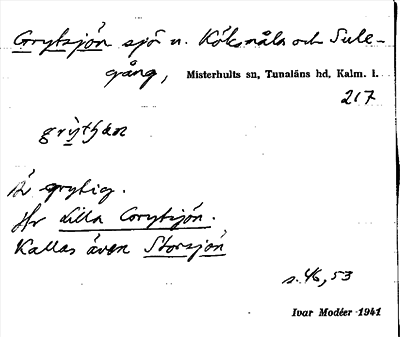 Grytsjön sjö n. Köksmåla och Sule-
gång, Misterhults sn, Tunaläns hd, Kalm. l.
217
Är grytig.
Jfr Lilla Grytsjön.
Kallas även Storsjön
s. 46, 53
Ivar Modéer 1941